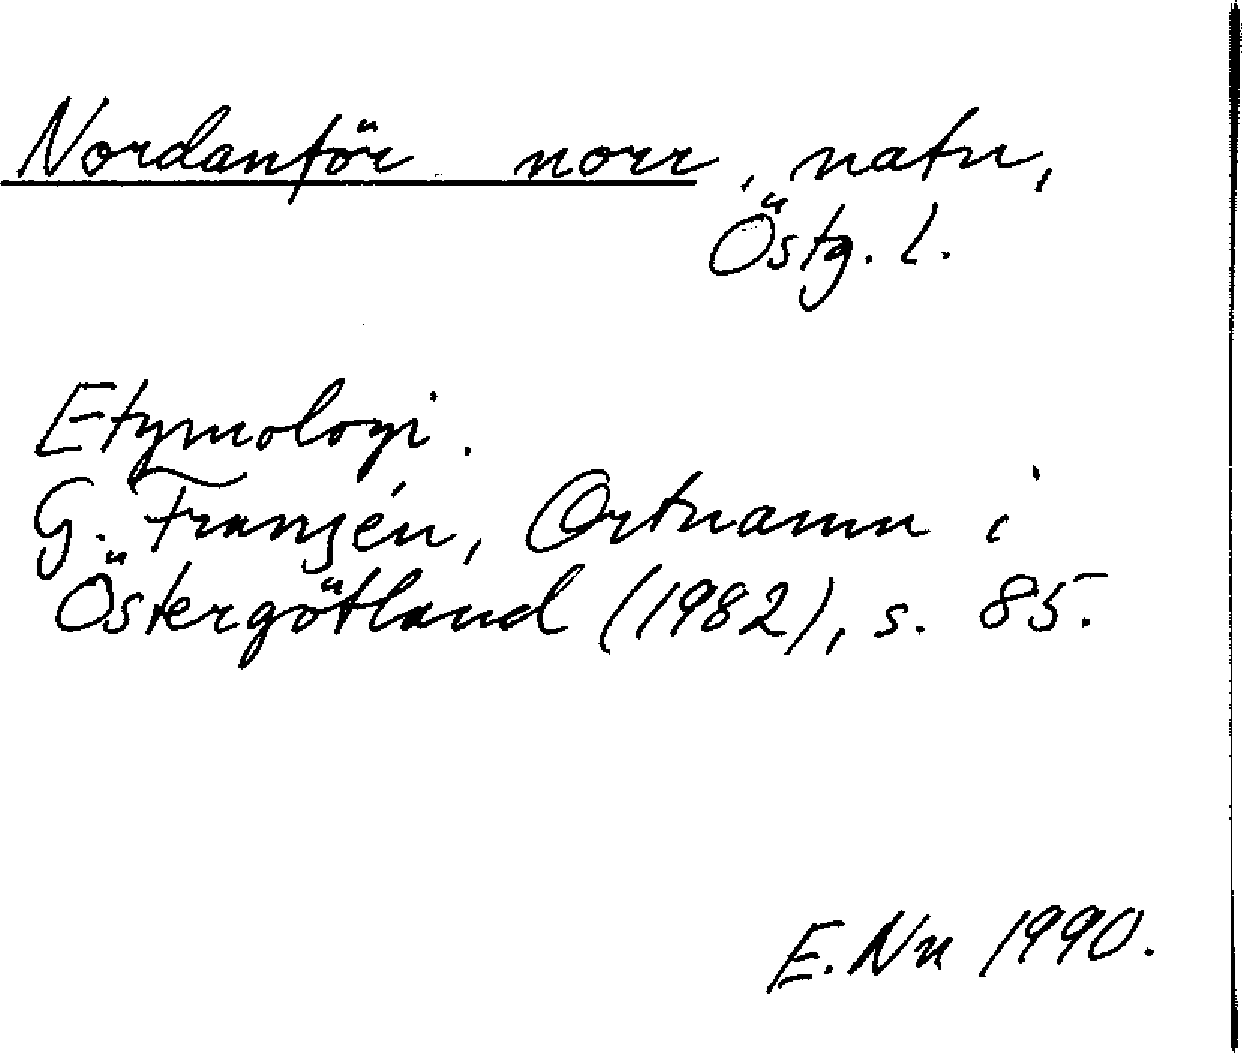 Nordanför norr, natn,
Östg. l.
Etymologi.
G. Franzén, Ortnamn i
Östergötland (1982), s. 85.
E. Nn 1990.